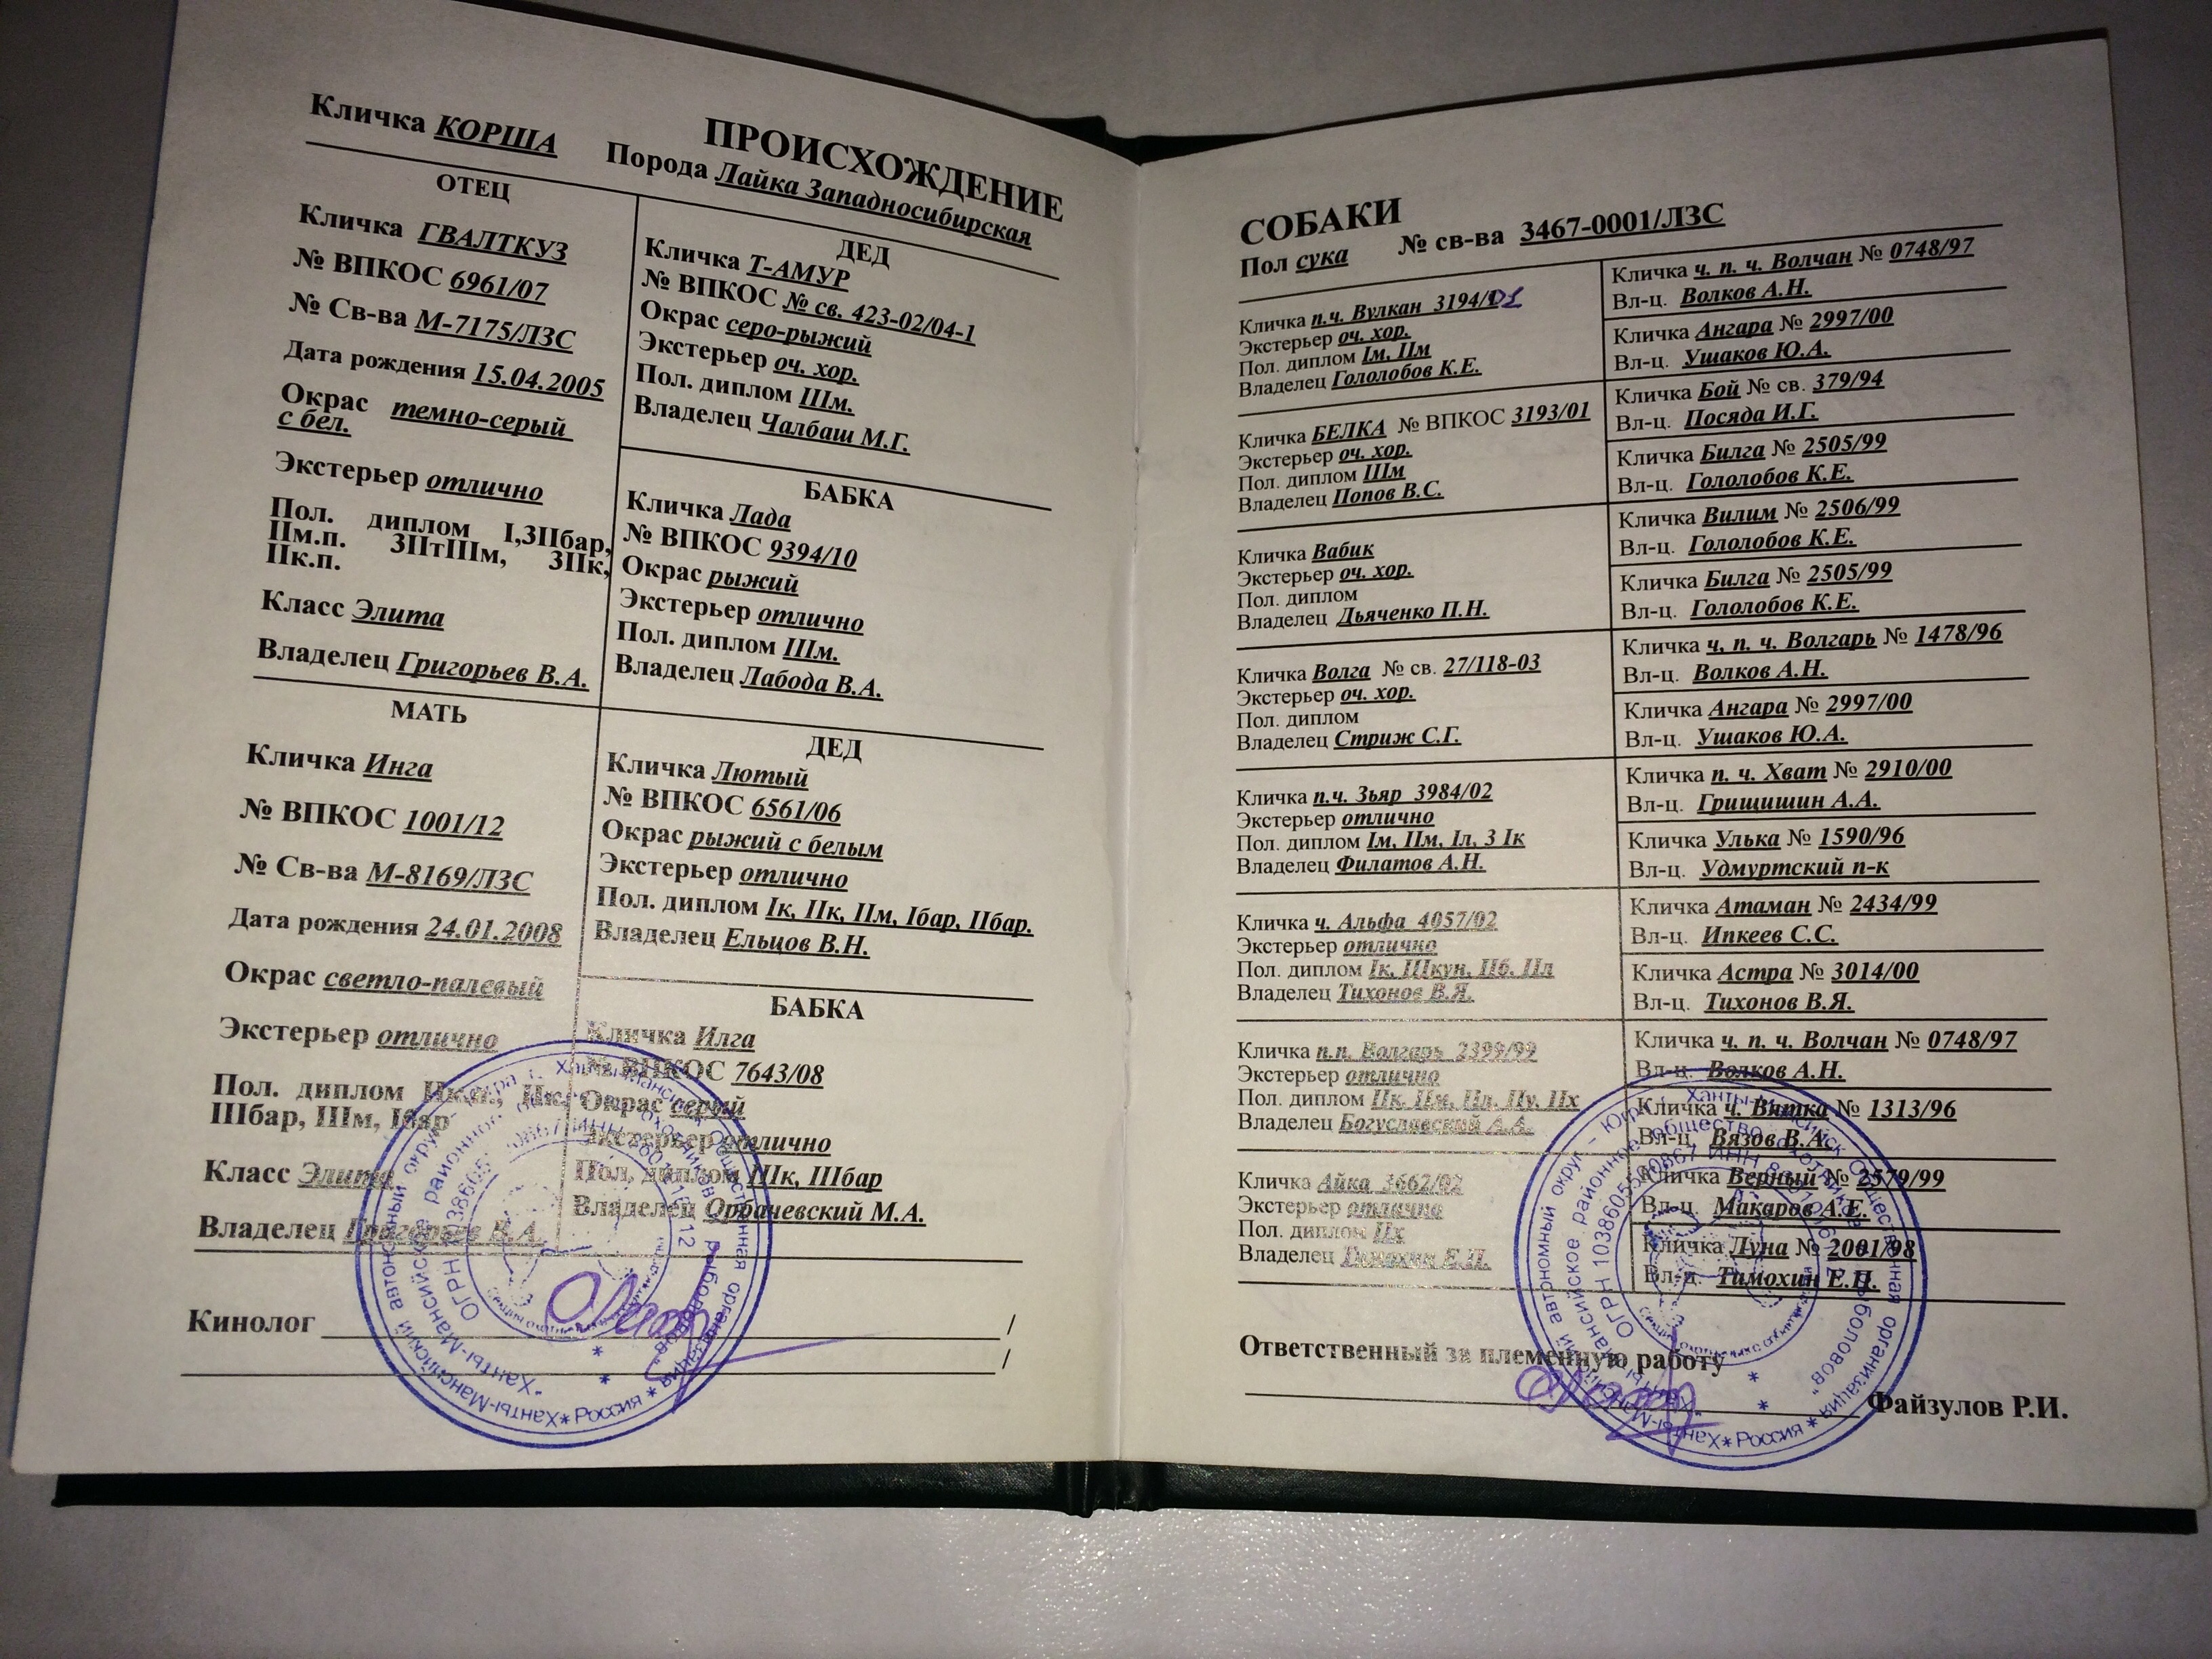 ПРОИСХОЖДЕНИЕ
Кличка КОРША Порода Лайка Западносибирская
ОТЕЦ
Кличка ГВАЛТКУЗ
№ ВПКОС 6961/07
№ Св-ва М-7175/ЛЗС
Дата рождения 15.04.2005
Окрас темно-серый
с бел.
Экстерьер отлично
Пол. диплом I,3IIбар,
IIм.п. 3IIтIIIм, 3IIк,
IIк.п.
Класс Элита
Владелец Григорьев В.А.
ДЕД
Кличка Т-АМУР
№ ВПКОС № св. 423-02/04-1
Окрас серо-рыжий
Экстерьер оч. хор.
Пол. диплом IIIм.
Владелец Чалбаш М.Г.
БАБКА
Кличка Лада
№ ВПКОС 9394/10
Окрас рыжий
Экстерьер отлично
Пол. диплом IIIм.
Владелец Лабода В.А.
МАТЬ
Кличка Инга
№ ВПКОС 1001/12
№ Св-ва М-8169/ЛЗС
Дата рождения 24.01.2008
Окрас светло-палевый
Экстерьер отлично
Пол. диплом IIк.п., IIк.
IIIбар, IIIм, Iбар
Класс Элита
Владелец Григорьев В.А.
ДЕД
Кличка Лютый
№ ВПКОС 6561/06
Окрас рыжий с белым
Экстерьер отлично
Пол. диплом Iк, IIк, IIм, Iбар, IIбар.
Владелец Ельцов В.Н.
БАБКА
Кличка Илга
№ ВПКОС 7643/08
Окрас серый
Экстерьер отлично
Пол. диплом IIIк, IIIбар
Владелец Орбачевский М.А.
Кинолог /
/
СОБАКИ
Пол сука № св-ва 3467-0001/ЛЗС
Кличка п.ч. Вулкан 3194/01
Экстерьер оч. хор.
Пол. диплом Iм, IIм
Владелец Гололобов К.Е.
Кличка БЕЛКА № ВПКОС 3193/01
Экстерьер оч. хор.
Пол. диплом IIIм
Владелец Попов В.С.
Кличка Вабик
Экстерьер оч. хор.
Пол. диплом
Владелец Дьяченко П.Н.
Кличка Волга № св. 27/118-03
Экстерьер оч. хор.
Пол. диплом
Владелец Стриж С.Г.
Кличка п.ч. Зьяр 3984/02
Экстерьер отлично
Пол. диплом Iм, IIм, Iл, 3 Iк
Владелец Филатов А.Н.
Кличка ч. Альфа 4057/02
Экстерьер отлично
Пол. диплом Iк, IIIкун, IIб, IIл
Владелец Тихонов В.Я.
Кличка п.п. Волгарь 2399/99
Экстерьер отлично
Пол. диплом IIк, IIм, IIл, IIу, IIх
Владелец Богуславский А.А.
Кличка Айка 3662/02
Экстерьер отлично
Пол. диплом IIх
Владелец Тимохин Е.П.
Кличка ч. п. ч. Волчан № 0748/97
Вл-ц. Волков А.Н.
Кличка Ангара № 2997/00
Вл-ц. Ушаков Ю.А.
Кличка Бой № св. 379/94
Вл-ц. Посяда И.Г.
Кличка Билга № 2505/99
Вл-ц. Гололобов К.Е.
Кличка Вилим № 2506/99
Вл-ц. Гололобов К.Е.
Кличка Билга № 2505/99
Вл-ц. Гололобов К.Е.
Кличка ч. п. ч. Волгарь № 1478/96
Вл-ц. Волков А.Н.
Кличка Ангара № 2997/00
Вл-ц. Ушаков Ю.А.
Кличка п. ч. Хват № 2910/00
Вл-ц. Грищишин А.А.
Кличка Улька № 1590/96
Вл-ц. Удмуртский п-к
Кличка Атаман № 2434/99
Вл-ц. Ипкеев С.С.
Кличка Астра № 3014/00
Вл-ц. Тихонов В.Я.
Кличка ч. п. ч. Волчан № 0748/97
Вл-ц. Волков А.Н.
Кличка ч. Вятка № 1313/96
Вл-ц. Вязов В.А.
Кличка Верный № 2579/99
Вл-ц. Макаров А.Е.
Кличка Луна № 2001/98
Вл-ц. Тимохин Е.П.
Ответственный за племенную работу
Файзулов Р.И.